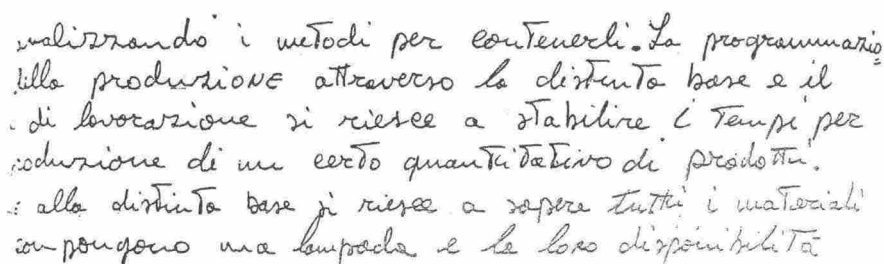 analizzando i metodi per contenerli. La programmazio=
della produzione attraverso la distinta base e il
di lavorazione si riesce a stabilire i tempi per
roduzione di un certo quantitativo di prodotti.
alla distinta base si riesce a sapere tutti i materiali
compongono una lampada e la loro disponibilità